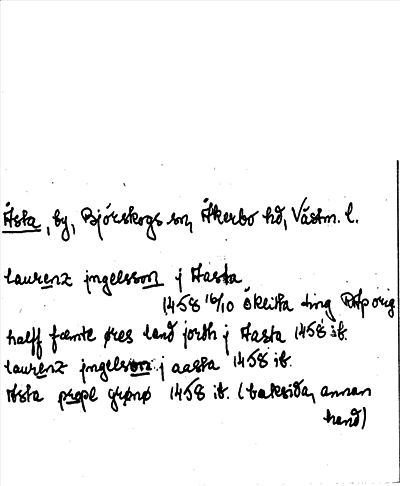 Åsta, by, Björskogs sn, Åkerbo hd, Västm. l.
laurenz jngelsson j Aasta
1458 16/10 ting RAp orig
halff fæmte øres land jorth j Aasta 1458 ib.
laurenz jngelsson j aasta 1458 ib.
Asta prope grønø 1458 ib. (baksida, annan
hand)